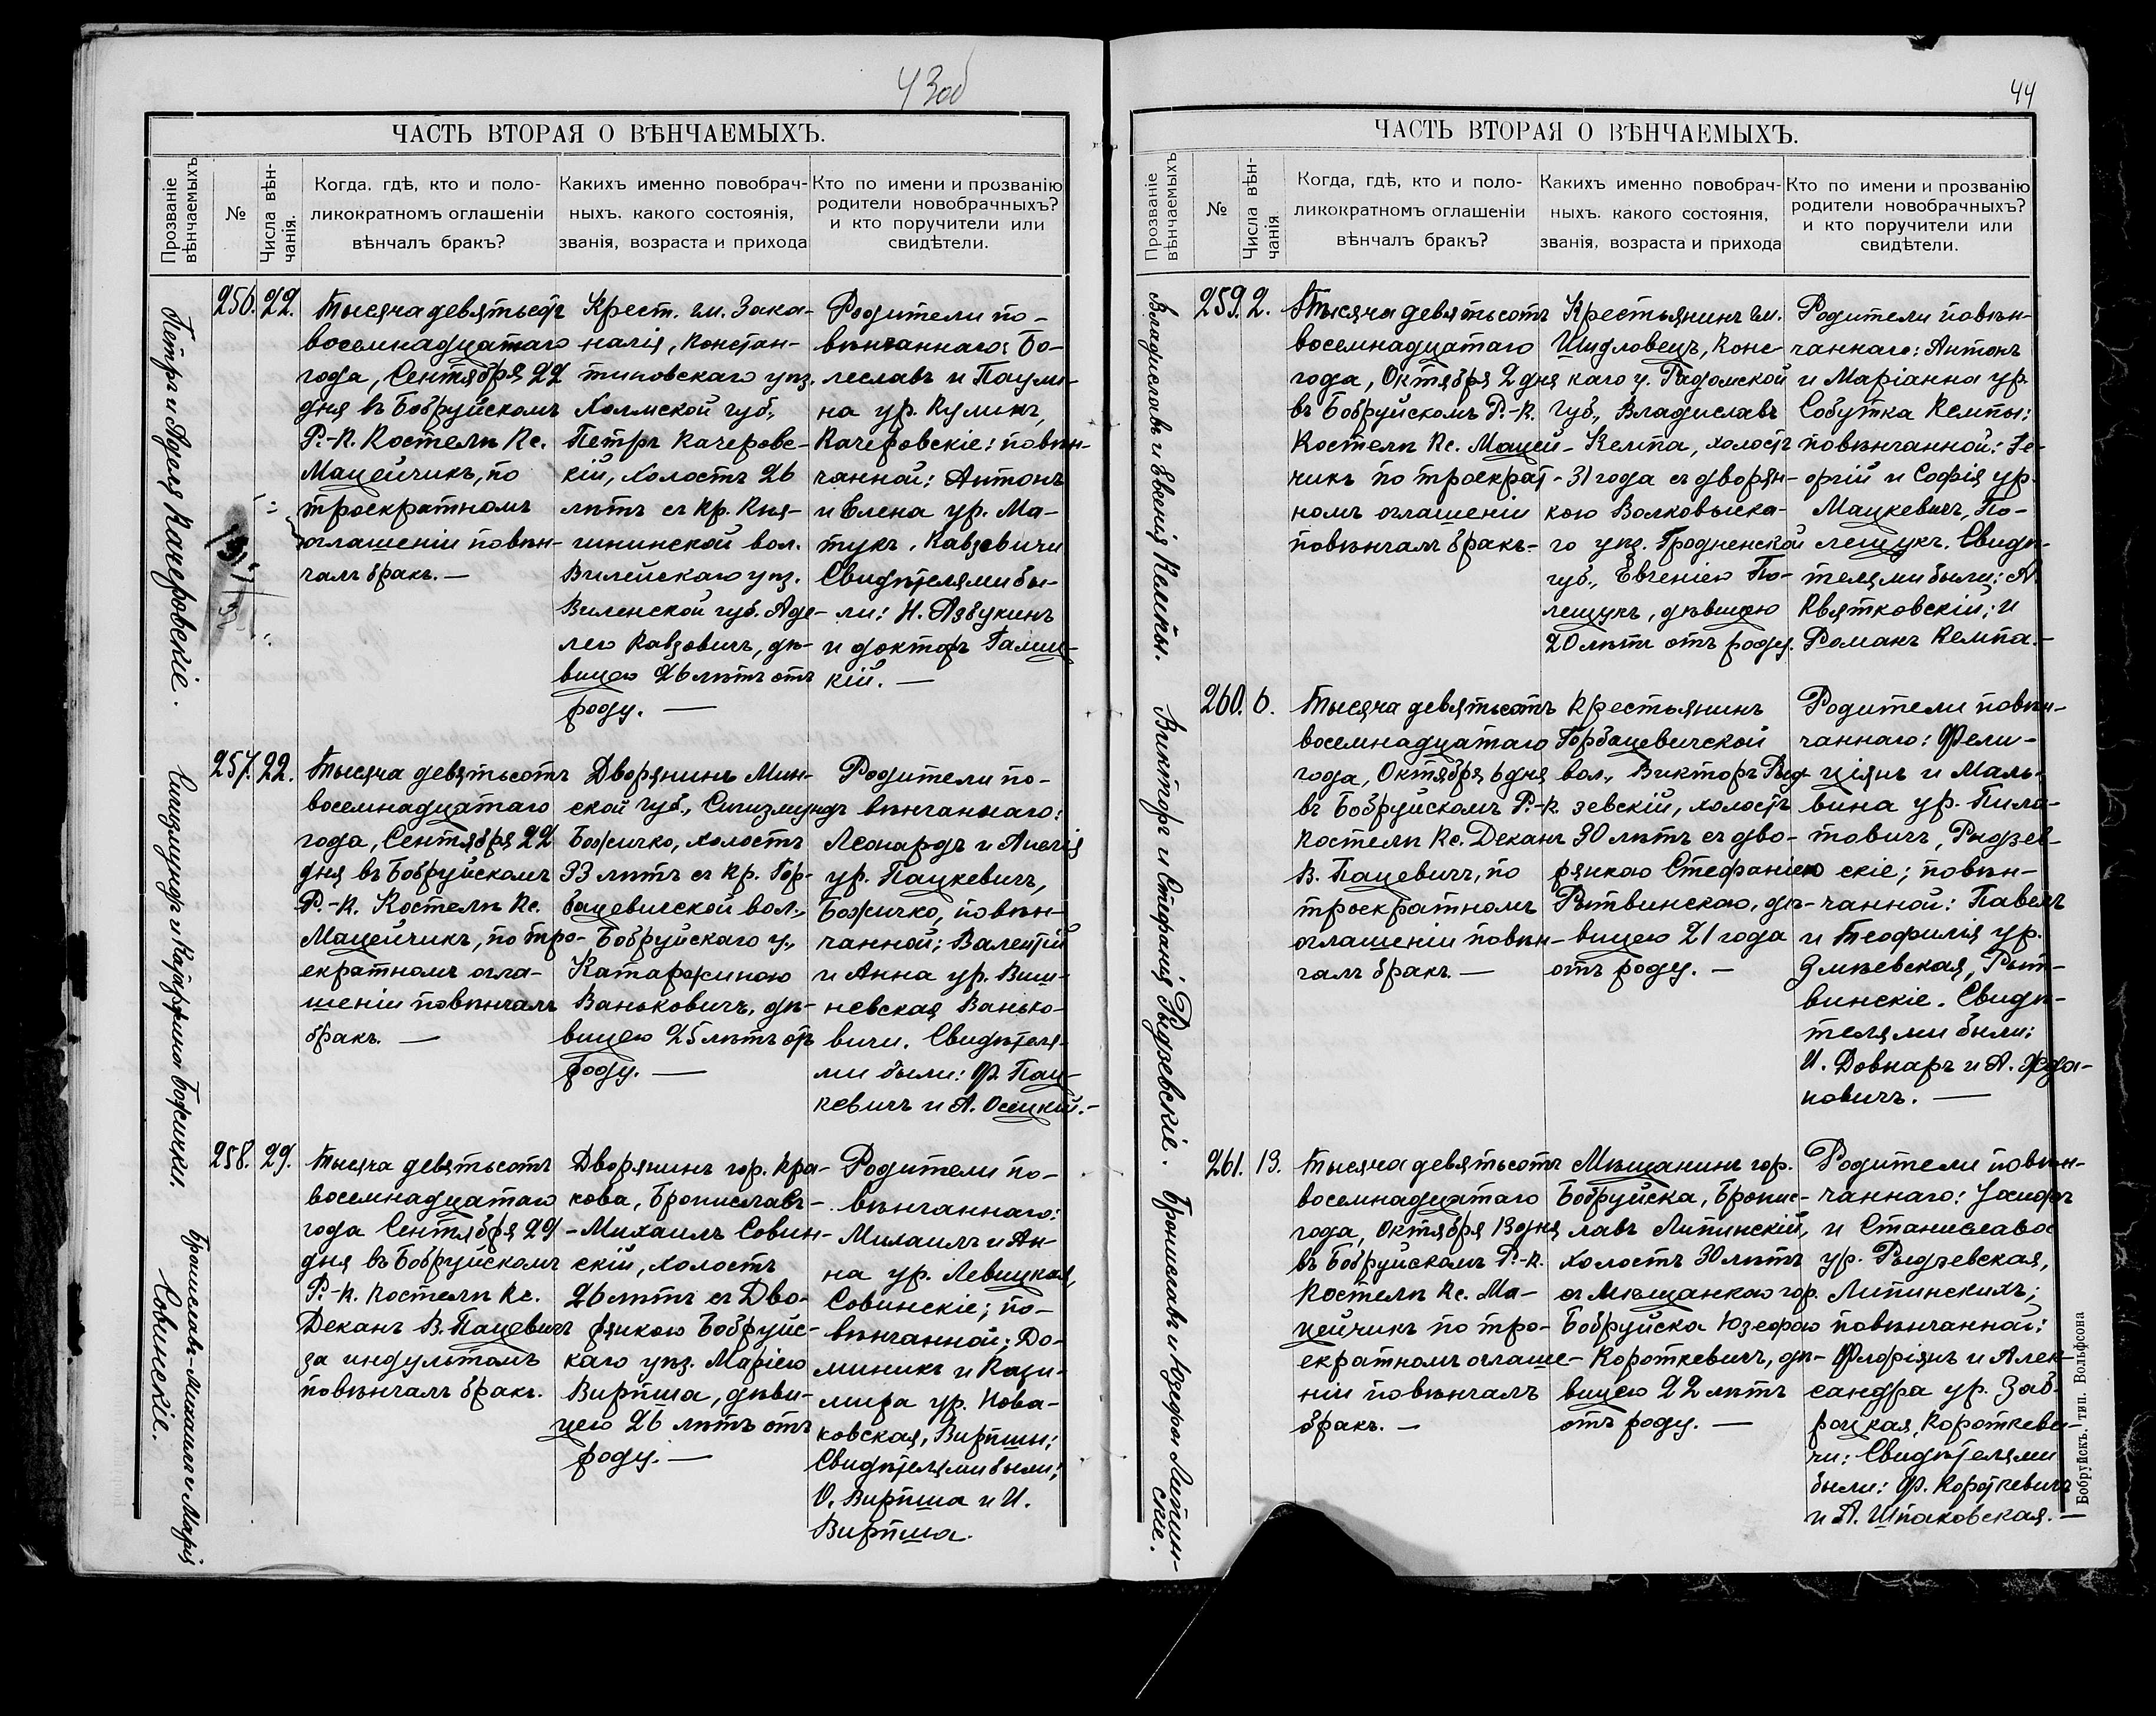 43об
ЧАСТЬ ВТОРАЯ О ВѢНЧАЕМЫХЪ.
Прозваніе вѣнчаемыхъ
№
Числа вѣнчанія.
Когда, гдѣ, кто и поло-
ликократномъ оглашеніи
вѣнчалъ бракъ?
Какихъ именно повобрач-
ныхъ. какого состоянія,
званія, возраста и прихода
Кто по имени и прозванію
родители новобрачныхъ?
и кто поручители или
свидѣтели.
Петръ и Аделя Качеровскіе.
256.
22.
Тысяча девятьсотъ
восемнадцатаго
года, Сентября 22
дня въ Бобруйскомъ
Р.-К. Костелѣ Кс.
Мацейчикъ, по
троекратномъ
оглашеніи повѣн-
чалъ бракъ. —
Крест. гм. Зака-
налія, Констан-
тиновскаго уѣз.
Холмской губ.,
Петръ Качеровс-
кій, холостъ 26
лѣтъ съ кр. Кня-
гининской вол.
Вилейскаго уѣз.
Виленской губ. Аде-
лею Кавзовичъ, дѣ-
вицею 26 лѣтъ отъ
роду. —
Родители по-
вѣнчаннаго: Бо-
леславъ и Паули-
на ур. Куликъ,
Качеровскіе: повѣн-
чанной: Антонъ
и Елена ур. Ма-
тукъ, Кавзовичи
Свидѣтелями бы-
ли: Н. Азбукинъ
и докторъ Галиц-
кій. —
Сигизмундъ и Катаржина Божички.
257.
22.
Тысяча девятьсотъ
восемнадцатаго
года, Сентября 22
дня въ Бобруйскомъ
Р.-К. Костелѣ Кс.
Мацейчикъ, по тро-
екратномъ огла-
шеніи повѣнчалъ
бракъ. —
Дворянинъ Мин-
ской губ., Сигизмундъ
Божичко, холостъ
33 лѣтъ съ кр. Гор-
бацевичской вол.,
Бобруйскаго у.,
Катаржиною
Ваньковичъ, дѣ-
вицею 25 лѣтъ отъ
роду. —
Родители по-
вѣнчаннаго:
Леонардъ и Анелія
ур. Пацкевичъ,
Божичко, повѣн-
чанной; Валентій
и Анна ур. Виш-
невская Ванько-
вичи. Свидѣтеля-
ми были: Ф. Пац-
кевичъ и А. Осицкій. —
Брониславъ-Михаилъ и Марія
Совинскіе.
258.
29.
Тысяча девятьсотъ
восемнадцатаго
года Сентября 29
дня въ Бобруйскомъ
Р.-К. Костелѣ Кс.
Деканъ В. Пацевичъ
за индультомъ
повѣнчалъ бракъ.
Дворянинъ гор. Кра-
кова, Брониславъ-
-Михаилъ Совин-
скій, холостъ
26 лѣтъ съ Дво-
рянкою Бобруйс-
каго уѣз. Маріею
Вирпша, дѣви-
цею 26 лѣтъ отъ
роду. —
Родители по-
вѣнчаннаго:
Михаилъ и Ан-
на ур. Левицкая,
Совинскіе; по-
вѣнчанной; До-
миникъ и Кази-
мира ур. Нова-
ковская, Вирпши;
Свидѣтелями были;
О. Вирпша и И.
Вирпша.
44
ЧАСТЬ ВТОРАЯ О ВѢНЧАЕМЫХЪ.
Прозваніе вѣнчаемыхъ
№
Числа вѣнчанія
Когда, гдѣ, кто и поло-
ликократномъ оглашеніи
вѣнчалъ бракъ?
Какихъ именно повобрач-
ныхъ. какого состоянія,
званія, возраста и прихода
Кто по имени и прозванію
родители новобрачныхъ?
и кто поручители или
свидѣтели.
Владиславъ и Евгенія Кемпы.
259.
2.
Тысяча девятьсотъ
восемнадцатаго
года, Октября 2 дня
въ Бобруйскомъ Р.-К.
Костелѣ Кс. Мацей-
чикъ по троекрат-
номъ оглашеніи
повѣнчалъ бракъ. —
Крестьянинъ гм.
Шидловецъ, Конс-
каго у. Радомской
губ., Владиславъ
Кемпа, холостъ
31 года съ дворян-
кою Волковыска-
го уѣз. Гродненской
губ., Евгеніею По-
лещукъ, дѣвицею
20 лѣтъ отъ роду.
Родители повѣн-
чаннаго: Антонъ
и Маріанна ур.
Собутка Кемпы:
повѣнчанной: Ге-
оргій и Софія ур.
Мацкевичъ, По-
лещукъ. Свидѣ-
телями были: А.
Квятковскій; и
Романъ Кемпа. —
Викторъ и Стефанія Рыдзевскіе.
260.
6.
Тысяча девятьсотъ
восемнадцатаго
года, Октября 6 дня
въ Бобруйскомъ Р.-К.
Костелѣ Кс. Деканъ
В. Пацевичъ, по
троекратномъ
оглашеніи повѣн-
чалъ бракъ. —
Крестьянинъ
Горбацевичской
вол., Викторъ Рыд-
зевскій, холостъ
30 лѣтъ съ дво-
рянкою Стефаніею
Рытвинскою, дѣ-
вицею 21 года
отъ роду. —
Родители повѣн-
чаннаго: Фели-
ціянъ и Маль-
вина ур. Пило-
товичъ, Рыдзев-
скіе; повѣн-
чанной: Павелъ
и Теофилія ур.
Змѣевская, Рыт-
винскіе. Свидѣ-
телями были:
И. Довнаръ и А. Жда-
новичъ. —
Брониславъ и Юзефа Липин-
скіе.
261.
13.
Тысяча девятьсотъ
восемнадцатаго
года, Октября 13 дня
въ Бобруйскомъ Р.-К.
Костелѣ Кс. Ма-
цейчикъ по тро-
екратномъ оглаше-
ніи повѣнчалъ
бракъ. —
Мѣщанинъ гор.
Бобруйска, Бронис-
лавъ Липинскій,
холостъ 30 лѣтъ
съ мѣщанкою гор.
Бобруйска Юзефою
Короткевичъ, дѣ-
вицею 22 лѣтъ
отъ роду. —
Родители повѣн-
чаннаго: Іосифъ
и Станислава
ур. Рыдзевская,
Липинскихъ;
повѣнчанной:
Флоріянъ и Алек-
сандра ур. Заб-
роцкая, Короткеви-
чи: Свидѣтелями
были: Ф. Короткевичъ
и А. Шпаковская. —
Бобруйскъ, тип. Вольфсона